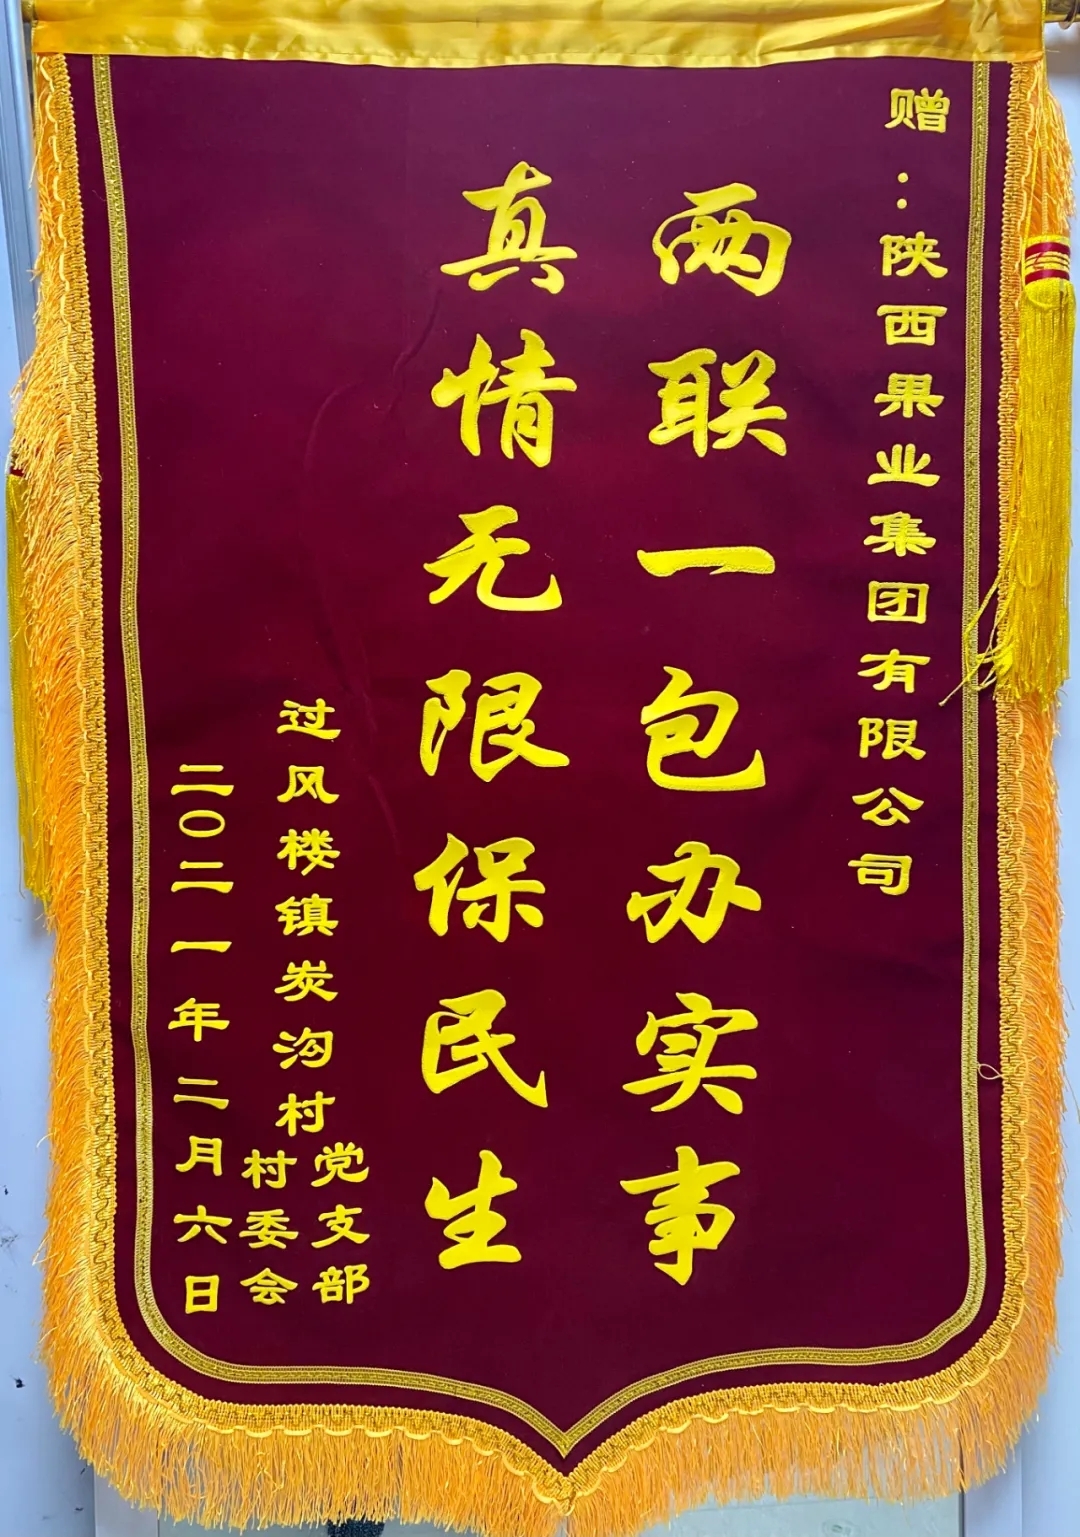 赠:陕西果业集团有限公司
两联一包办实事
真情无限保民生
过风楼镇炭沟村
党支部
村委会
二〇二一年二月六日